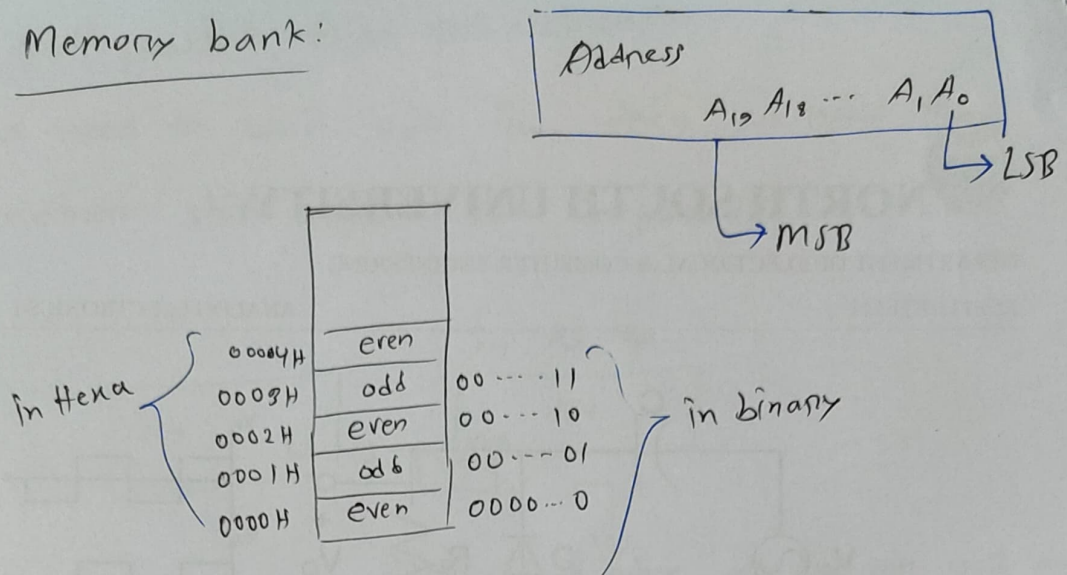 Memory bank:
Address
A19 A18 ... A1 A0
LSB
MSB
in Hexa
0004H even
0003H odd 00....11
0002H even 00...10
0001H odb 00...01
0000H even 0000...0
in binary
NORTH SOUTH UNIVERSITY